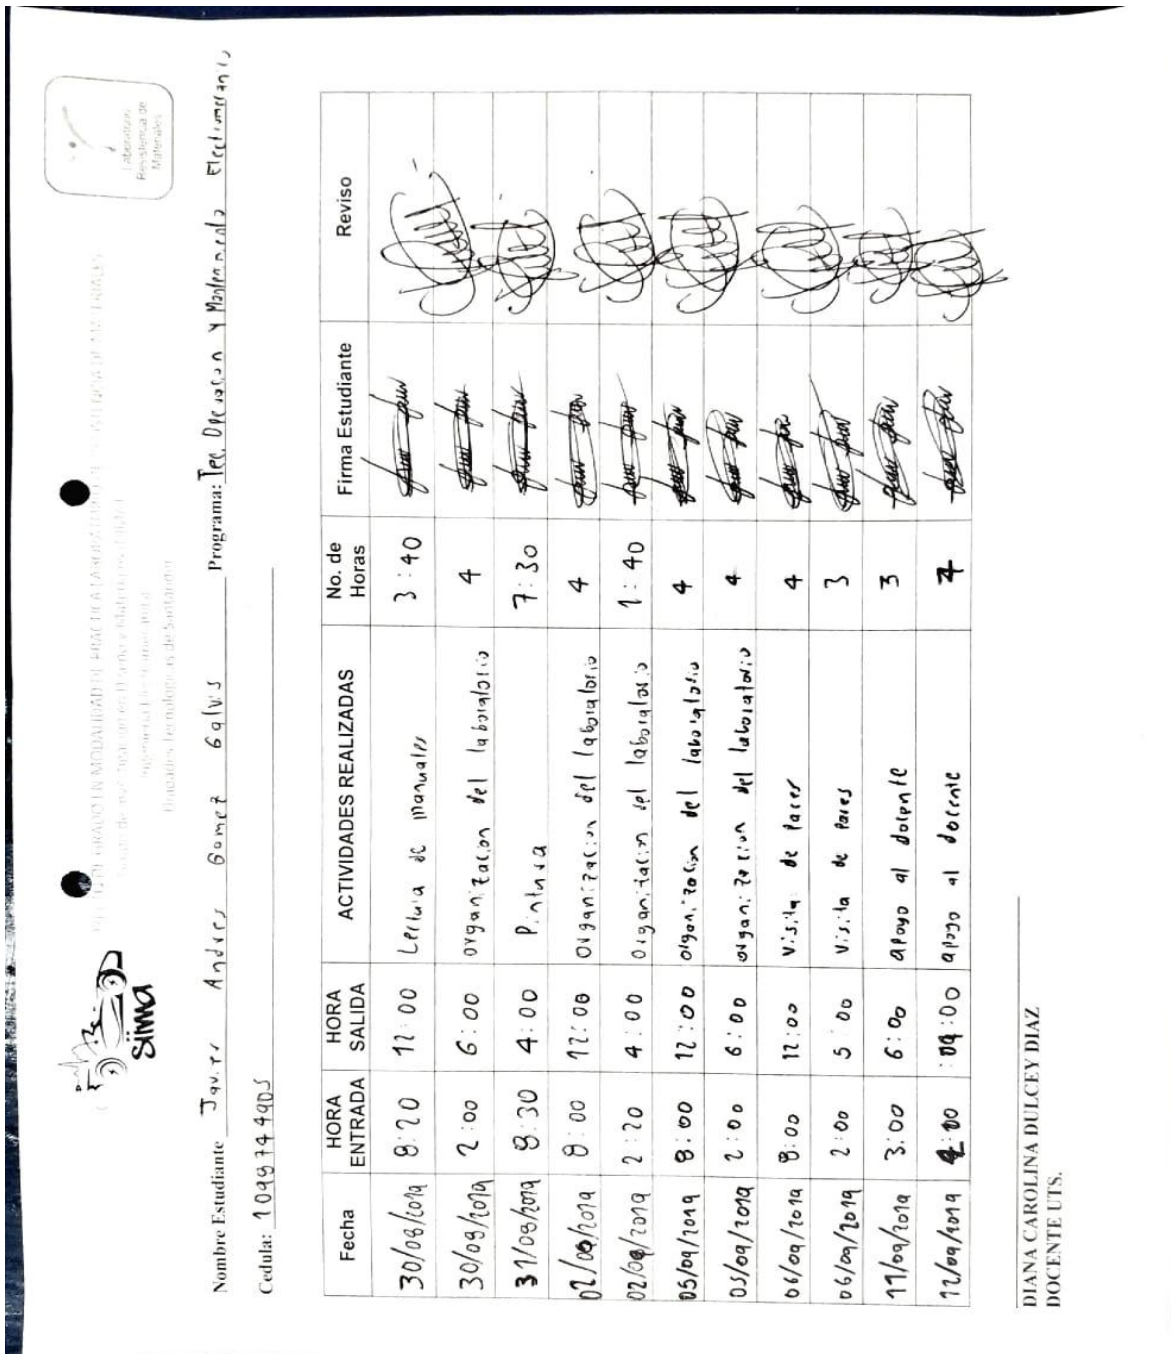 PROYECTO DE GRADO EN MODALIDAD DE PRACTICA LABORATORIO DE RESISTENCIA DE MATERIALES
Unidades Tecnologicas de Santander
Siima
Laboratorio
Resistencia de
Materiales
Nombre Estudiante Javier Andres Gomez Galvis Programa: Tec. Operacion y Mantenimiento Electromecanico
Cedula: 1099744905
Fecha HORA ENTRADA HORA SALIDA ACTIVIDADES REALIZADAS No. de Horas Firma Estudiante Reviso
30/08/2019 8:20 12:00 Lectura de manuales 3:40
30/08/2019 2:00 6:00 organizacion del laboratorio 4
31/08/2019 8:30 4:00 Pintura 7:30
02/09/2019 8:00 12:00 Organizacion del laboratorio 4
02/09/2019 2:20 4:00 Organizacion del laboratorio 1:40
05/09/2019 8:00 12:00 organizacion del laboratorio 4
05/09/2019 2:00 6:00 organizacion del laboratorio 4
06/09/2019 8:00 12:00 Visita de Pares 4
06/09/2019 2:00 5:00 Visita de Pares 3
11/09/2019 3:00 6:00 apoyo al docente 3
12/09/2019 :00 apoyo al docente
DIANA CAROLINA DULCEY DIAZ
DOCENTE UTS.